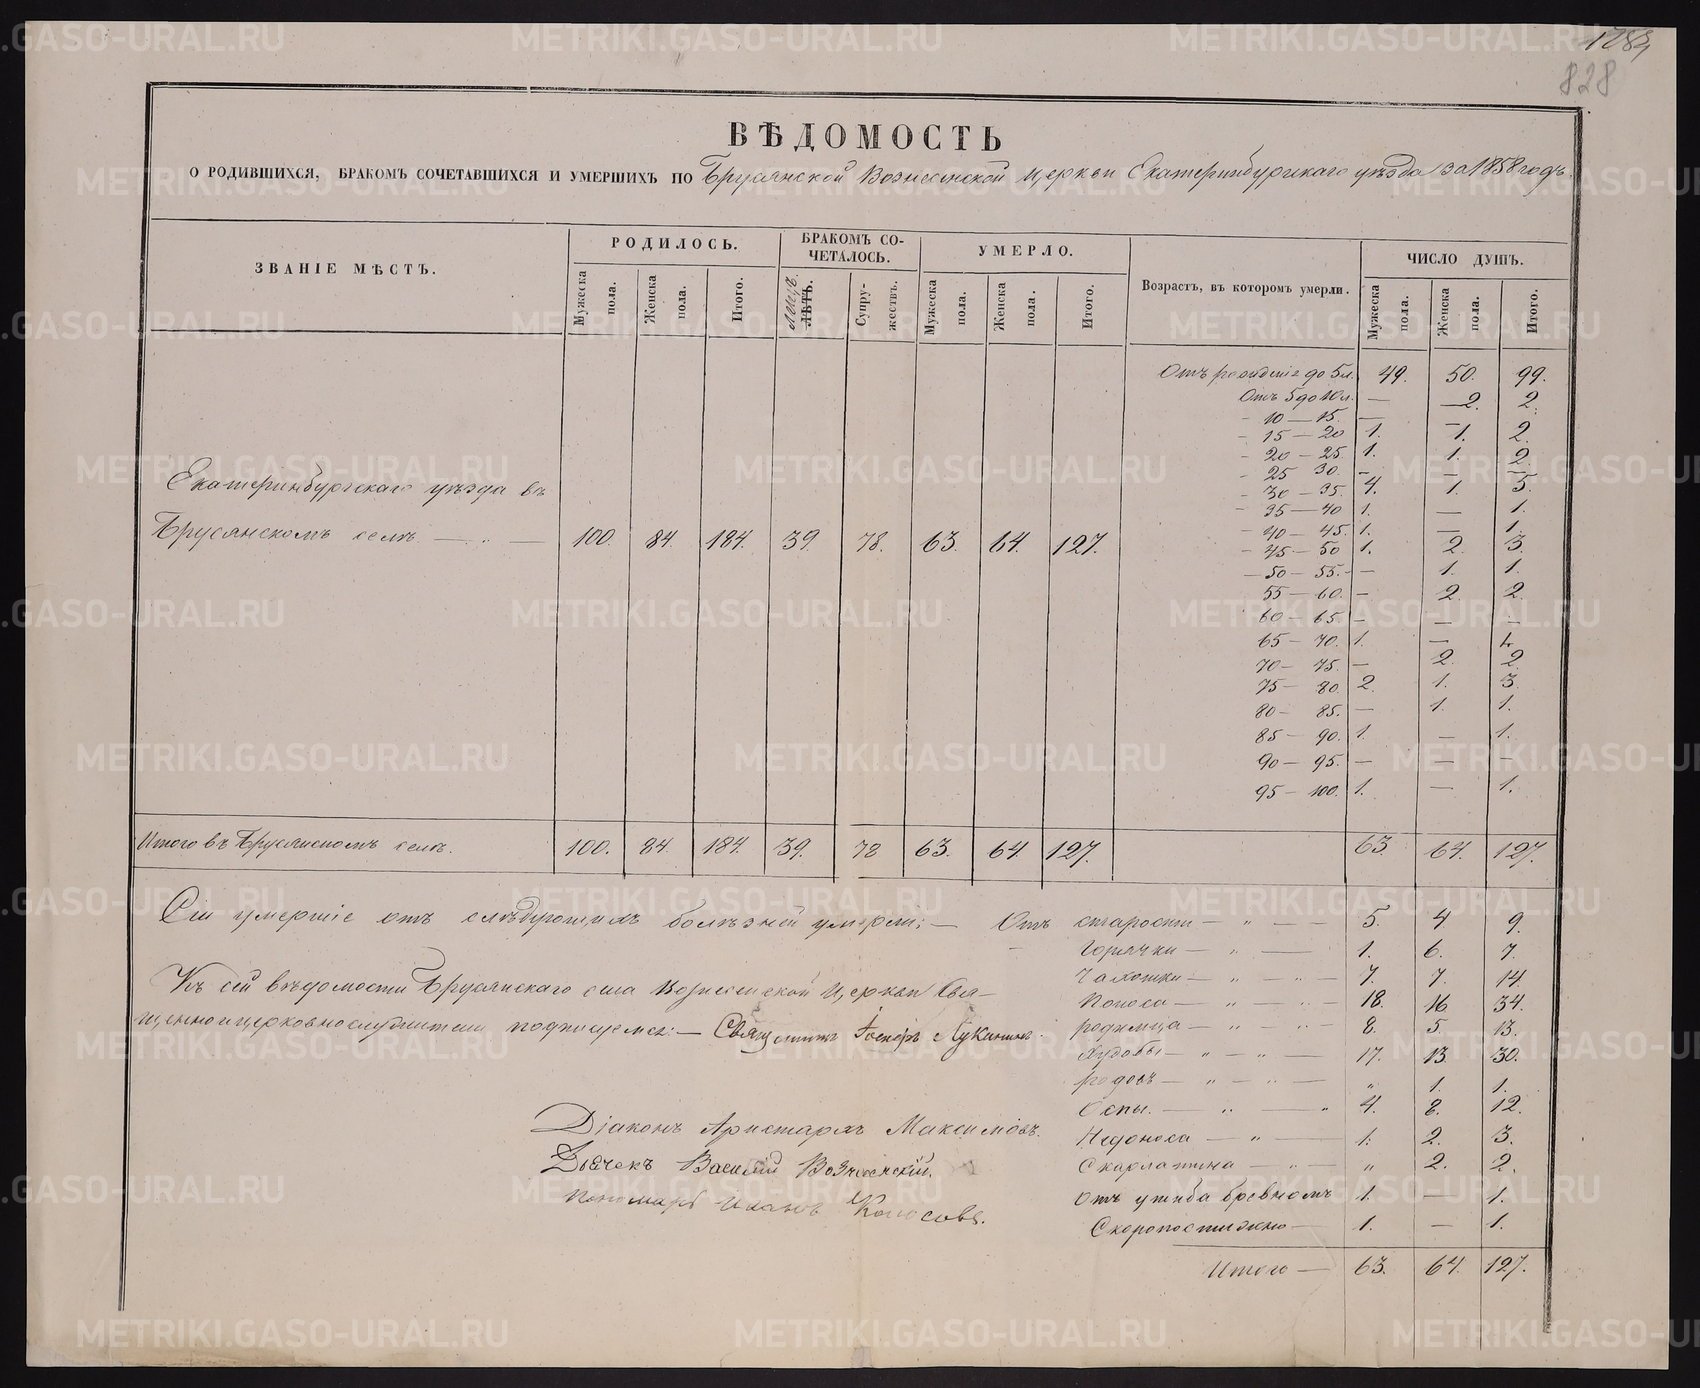 1283
828
ВѢДОМОСТЬ
О РОДИВШИХСЯ, БРАКОМЪ СОЧЕТАВШИХСЯ И УМЕРШИХЪ ПО Брусянской Вознесенской церкви Екатеринбургскаго уѣзда за 1858 годъ.
ЗВАНІЕ МѢСТЪ.
РОДИЛОСЬ.
Мужеска пола.
Женска пола.
Итого.
БРАКОМЪ СО-
ЧЕТАЛОСЬ.
лицъ
ЛѢТЪ.
Супру-
жествъ.
УМЕРЛО.
Мужеска пола.
Женска пола.
Итого.
Возрастъ, въ которомъ умерли.
ЧИСЛО ДУШЪ.
Мужеска пола.
Женска пола.
Итого.
Екатеринбургскаго уѣзда въ
Брусянскомъ селѣ — „ — 100. 84. 184. 39. 78. 63. 64. 127.
Отъ рожденія до 5 л. 49. 50. 99.
Отъ 5 до 10 л. — — 2. 2.
- 10 — 15. —
- 15 — 20 1. 1. 2.
- 20 — 25. 1. 1. 2.
- 25 30. — — —
- 30 — 35. 4. 1. 5.
- 35 — 40 1. — 1.
- 40 — 45. 1. — 1.
- 45 — 50 1. 2. 3.
- 50 — 55. — 1. 1.
55 — 60. — 2. 2.
60 — 65. — — —
65 — 70. 1. — 1.
70 — 75. — 2. 2.
75 — 80. 2. 1. 3.
80 — 85. — 1. 1.
85 — 90. 1. — 1.
90 — 95. — — —
95 — 100. 1. — 1.
Итого въ Брусянскомъ селѣ. 100. 84. 184. 39. 78 63. 64. 127. 63. 64. 127.
Сіи умершіе отъ слѣдующихъ болѣзней умерли: — Отъ старости — „ — — 5. 4 9.
Горячки — „ — 1. 6. 7.
Чахотки — „ — „ — 7. 7. 14.
Поноса — „ — „ — 18. 16. 34.
родимца — „ „ — 8. 5. 13.
Худобы — „ — „ — 17. 13. 30.
родовъ — „ — „ — „ 1. 1.
Оспы. — „ — „ 4. 8. 12.
Недоноса — „ — 1. 2. 3.
Скарлатина — „ — „ 2. 2.
Отъ ушиба бревномъ 1. — 1.
Скоропостижно — 1. — 1.
Итого — 63. 64. 127.
Къ сей вѣдомости Брусянскаго села Вознесенской Церкви Свя-
щенноицерковнослужители подписуемся: — Священникъ Лукинъ.
Діаконъ Аристархъ Максимовъ.
Дьячекъ Василій Вознесенскій.
Пономарь Иванъ
METRIKI.GASO-URAL.RU